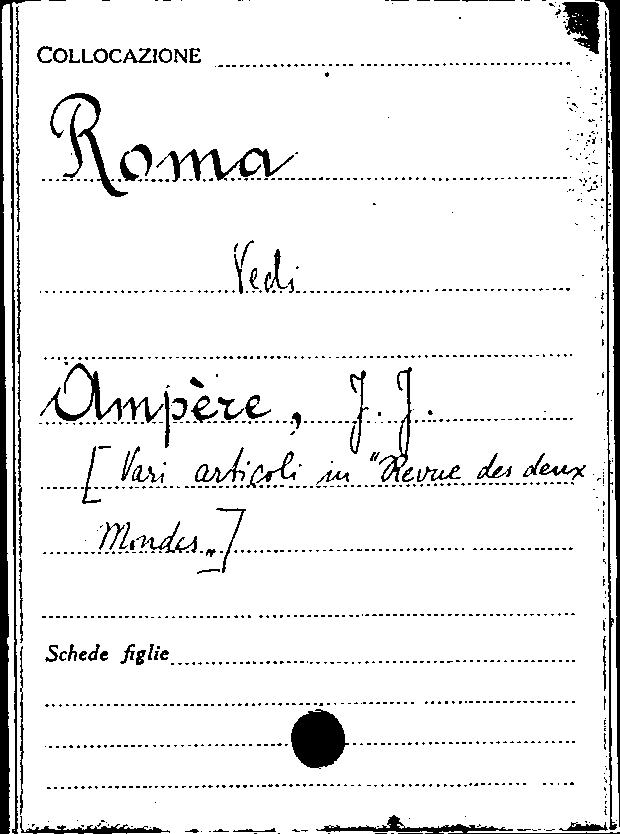 COLLOCAZIONE
Roma
Vedi
Ampère, J. J.
[Vari articoli in "Revue des deux
Mondes„]
Schede figlie